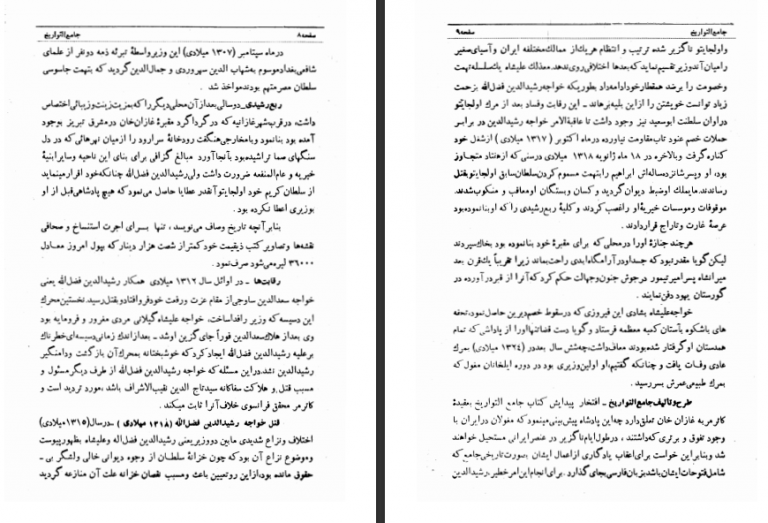 صفحه ۸
جامع‌التواریخ
درماه سپتامبر (۱۳۰۷ میلادی) این وزیر واسطهٔ تبرئه ذمه دونفر از علمای
شافعی بغداد موسوم به شهاب الدین سهروردی و جمال‌الدین گردید که بتهمت جاسوسی
سلطان مصر متهم بودند مواخذ شد.
ربع رشیدی ـ دوسالی بعد از آن محلی دیگر را که بمزیت زینت و زیبائی اختصاص
داشت، درقرب شهر غازانیه که در گرداگرد مقبرهٔ غازان‌خان درمشرق تبریز بوجود
آمده بود بنا نمود و با مخارجی هنگفت رودخانهٔ سراورد را از میان نهرهائی که در دل
سنگهای صما تراشیده بود بآنجا آورد مبالغ گزافی برای بنای این ناحیه و سایر ابنیهٔ
خیریه و عام‌المنفعه ضرورت داشت ولی رشیدالدین فضل‌الله چنانکه خود اقرار مینماید
از سلطان کریم خود اولجایتو آنقدر عطایا حاصل می‌نمود که هیچ پادشاهی قبل از او
بوزیری اعطا نکرده بود.
بنابر آنچه تاریخ وصاف می‌نویسد، تنها برای اجرت استنساخ و صحافی
نقشه‌ها و تصاویر کتب ذیقیمت خود کمتر از شصت هزار دینار که بپول امروز معادل
۳۶۰۰۰ لیره میشود صرف نمود.
رقابت‌ها ـ در اوائل سال ۱۳۱۲ میلادی همکار رشیدالدین فضل‌الله یعنی
خواجه سعدالدین ساوجی از مقام عزت ورفعت خود فرو افتاد و بقتل رسید. نخستین محرک
این دسیسه که وزیر را فدا ساخت، خواجه علیشاه گیلانی مردی مغرور و فرومایه بود
وی بعد از هلاک سعدالدین فوراً جای گزین او شد ـ بعد از اندک زمانی دسیسه‌ای خطرناک
برعلیه رشیدالدین فضل‌الله ایجاد کرد که خوشبختانه بمحرک آن بازگشت و دامنگیر
رشیدالدین نشد. در این مسئله که خواجه رشیدالدین فضل‌الله از طرف دیگر مسئول و
مسبب قتل و هلاکت سفاکانه سید تاج الدین نقیب‌الاشراف باشد، مورد تردید است و
کاترمر محقق فرانسوی خلاف آنرا ثابت میکند.
قتل خواجه رشیدالدین فضل‌الله (۱۳۱۸ میلادی) ـ درسال (۱۳۱۵ میلادی)
اختلاف و نزاع شدیدی مابین دو وزیر یعنی رشیدالدین فضل‌اله و علیشاه بظهور پیوست
و موضوع نزاع آن بود که چون خزانهٔ سلطان از وجوه دیوانی خالی و لشگر بی ـ
حقوق مانده بود، از این رو تعیین باعث و مسبب نقصان خزانه علت آن منازعه گردید
صفحه ۹
جامع‌التواریخ
و اولجایتو ناگزیر شده ترتیب و انتظام هریک از ممالک مختلفه ایران و آسیای صغیر
را میان آندو وزیر تقسیم نماید که بعدها اختلافی روی ندهد. معذلک علیشاه یک سلسله تهمت
و خصومت را برضد همقطار خود ادامه داد بطوریکه خواجه رشیدالدین فضل‌الله بزحمت
زیاد توانست خویشتن را از این بلیه برهاند ـ این رقابت وفساد بعد از مرک اولجایتو
در اوان سلطنت ابوسعید نیز وجود داشت تا عاقبة‌الامر خواجه رشیدالدین در برابر
حملات خصم عنود تاب مقاومت نیاورده درماه اکتوبر (۱۳۱۷ میلادی) از شغل خود
کناره گرفت و بالاخره در ۱۸ ماه ژانویه ۱۳۱۸ میلادی درسنی که از هفتاد متجاوز
بود، او و پسر شانزده ساله‌اش ابراهیم را بتهمت مسموم کردن سلطان سابق اولجایتو بقتل
رساندند. مایملک او ضبط دیوان گردید و کسان و بستگان او معاقب و منکوب شدند.
موقوفات و موسسات خیریهٔ او را غصب کردند و کلیهٔ ربع رشیدی را که او بنا نموده بود
عرصهٔ غارت و تاراج قراردادند.
هرچند جنازهٔ او را در محلی که برای مقبرهٔ خود بنا نموده بود بخاک سپردند
لیکن گویا مقدر نبود که جسد او در آرامگاه ابدی راحت بماند زیرا تقریباً یک قرن بعد
میرانشاه پسر امیر تیمور درجوش جنون و جهالت حکم کرد که آنرا از قبر درآورده در
گورستان یهود دفن نمایند.
خواجه علیشاه بشادی این فیروزی که درسقوط خصم دیرین حاصل نمود، تحفه
های باشکوه بآستان کعبه معظمه فرستاد و گویا دست قضا تنها او را از پاداشی که تمام
همدستان او گرفتار شده بودند معاف داشت، چه شش سال بعد در (۱۳۲۴ میلادی) بمرک
عادی وفات یافت و چنانکه گفتیم، او اولین وزیری بود در دوره ایلخانان مغول که
بمرک طبیعی عمرش بسر رسید.
طرح و تالیف جامع‌التواریخ ـ افتخار پیدایش کتاب جامع التواریخ بعقیدهٔ
کاترمر به غازان خان تعلق دارد چه این پادشاه پیش بینی مینمود که مغولان در ایران با
وجود تفوق و برتری که داشتند، درطول ایام ناگزیر در عنصر ایرانی مستحیل خواهند
شد و بنابر این خواست برای اعقاب یادگاری از اعمال ایشان بصورت تاریخی جامع که
شامل فتوحات ایشان باشد بزبان فارسی بجای گذارد. برای انجام این امر خطیر، رشیدالدین